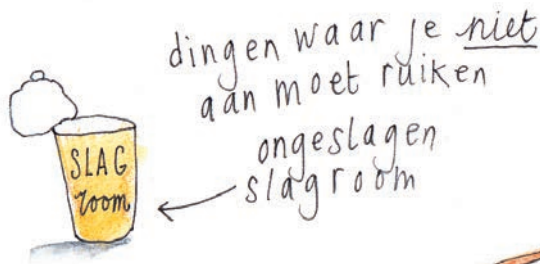 dingen waar je niet
aan moet ruiken
ongeslagen
slagroom
SLAG
room